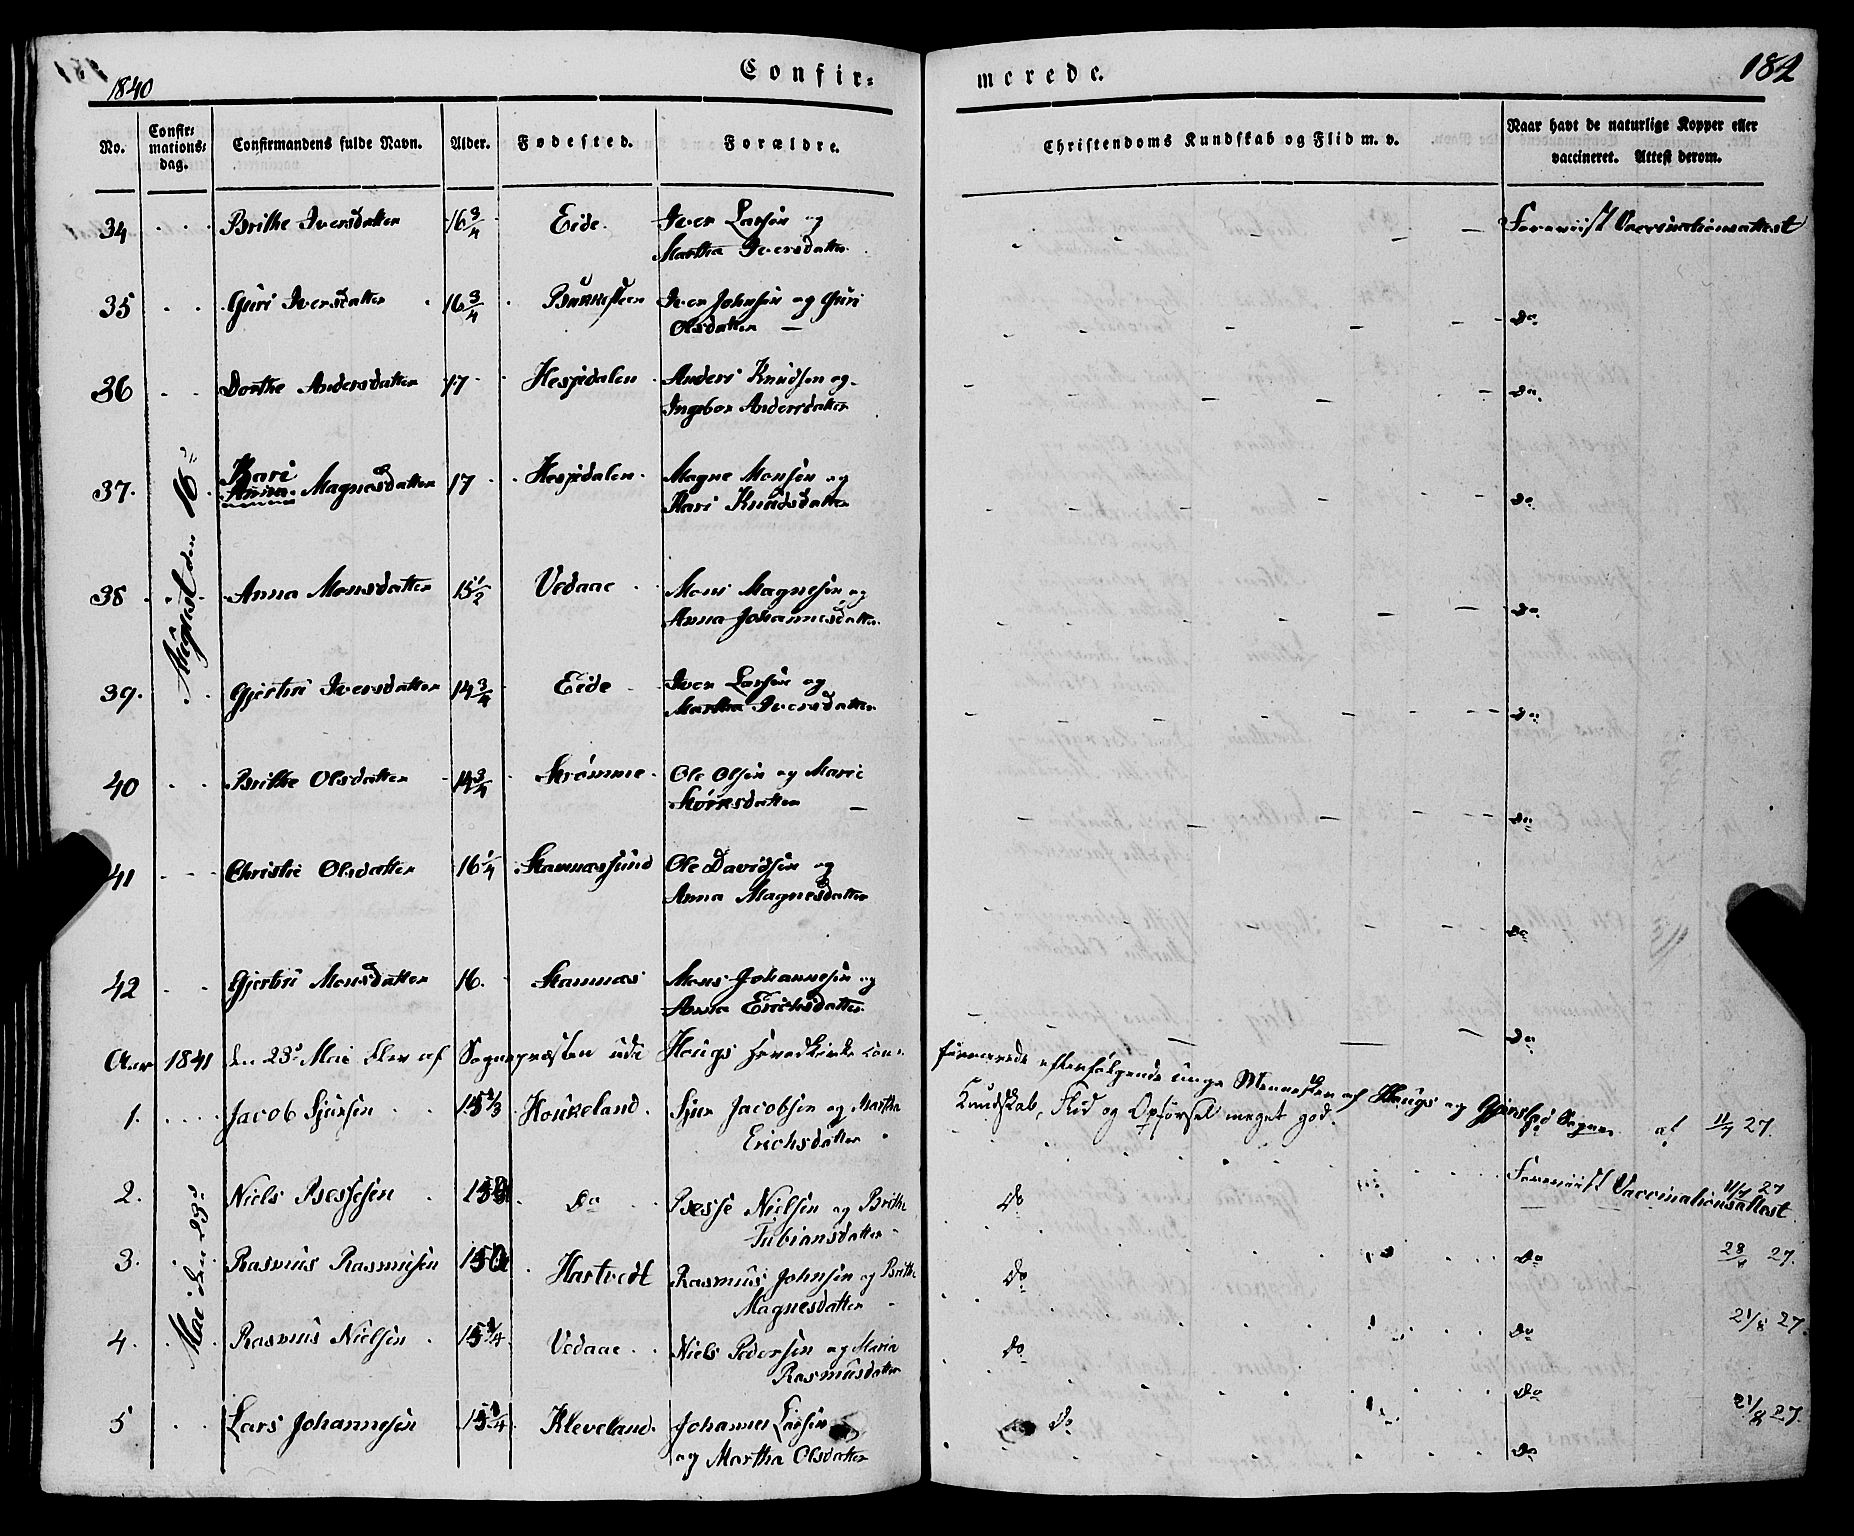 1840
Confir=
merede.
182
No.
Confir=
mations=
dag.
Confirmandens fulde Navn.
Alder.
Fødested.
Forældre.
Christendoms Kundskab og Flid m. v.
Naar havt de naturlige Kopper eller
vaccineret. Attest derom.
August den 16de
34 Brithe Iversdatter 16 3/4 Eide. Iver Larsen og Foreviist Vaccinationsattest
Martha Iversdatter
35 Guri Iversdatter 16 3/4 Iver Johnsen og Guri
Olsdatter — Do
36 Dorthe Andersdatter 17 Hesjedalen Anders Knudsen og
Ingebor Andersdatter Do
37. Kari
Anna Magnesdatter 17 Hesjedalen Magne Monsen og
Kari Knudsdatter Do
38 Anna Monsdatter 15 1/2 Vedaae Mons Magnesen og
Anna Johannesdatter Do
39. Gjertrü Iversdatter 14 3/4 Eide Iver Larsen og
Martha Iversdatter Do
40 Brithe Olsdatter 14 3/4 Strømme Ole Olsen og Marie
Do
41 Christie Olsdatter 16 1/4 Stamnæssund Ole Davidsen og
Anna Magnesdatter Do
42 Gjertrü Monsdatter 16. Stamnæs Mons Johannesen og
Anna Erichsdatter Do
Aar 1841 den 23de Mai blev af Sognepræsten udi Hougs Hovedkirke con-
firmerede efterfølgende unge Mennesker af Hougs og Sogne
Mai den 23de
1. Jacob Sjursen 15 Houkeland. Sjur Jacobsen og Martha Kundskab, Flid og Opførsel meget god. 11/7 27.
Erichsdatter
2. Niels Bessesen Do Besse Nielsen og Brithe Do Foreviist Vaccinationsattest 11/7 27
Fabiansdatter
3. Rasmus Rasmusen Hartvedt Rasmus Johnsen og Brithe Do Do 27.
Magnesdatter
4. Rasmus Nielsen Vedaae Niels Pedersen og Maria Do Do 21/8 27.
Rasmusdatter Do
5 Lars Johannesen Kleveland. Johannes Larsen Do 21/8 27.
og Martha Olsdatter Do